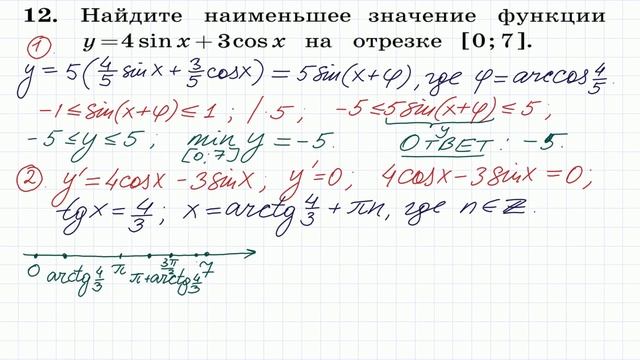 12. Найдите наименьшее значение функции
y=4sin x+3cos x на отрезке [0; 7].
① y=5(4/5 sinx + 3/5 cosx) = 5sin(x+φ), где φ=arccos 4/5.
-1≤sin(x+φ)≤1 ; /·5 ; -5≤5sin(x+φ)≤5 ;
y
-5≤y≤5 ; min y = -5. ОТВЕТ: -5.
[0;7]
② y'=4cosx-3sinx; y'=0; 4cosx-3sinx=0;
tgx=4/3; x=arctg 4/3 + πn, где n∈Z.
0 arctg 4/3 π π+arctg 4/3 3π/2 7